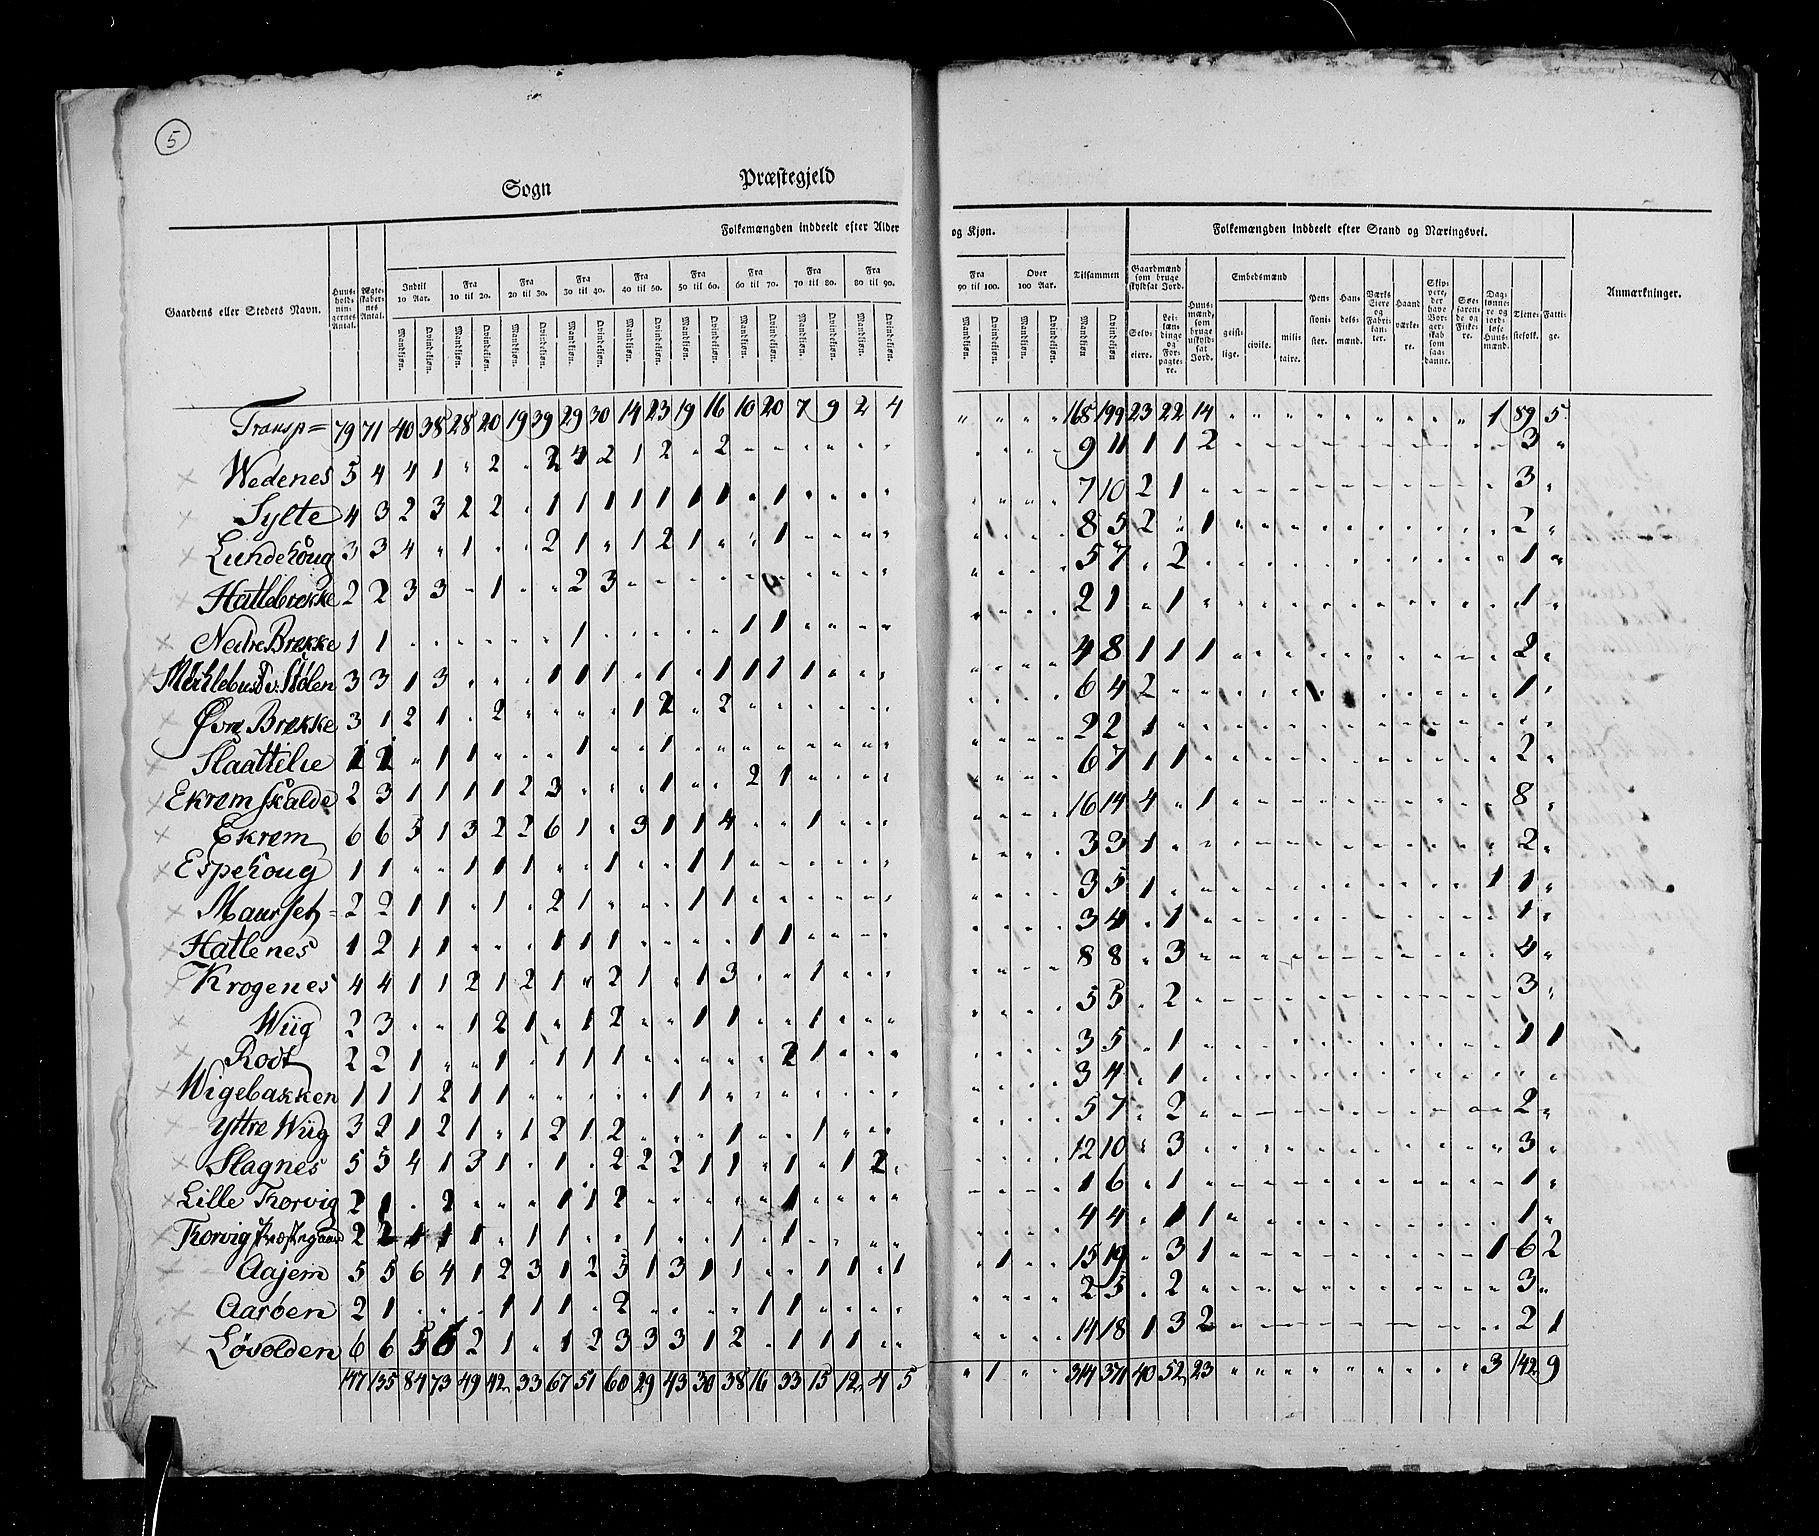 5
Sogn Præstegjeld
Folkemængden inddeelt efter Alder og Kjøn. Folkemængden inddeelt efter Stand og Næringsvei.
Gaardens eller Stedets Navn. Huus-hold-nin-gernes Antal. Ægte-skaber-nes Antal. Indtil 10 Aar. Fra 10 til 20. Fra 20 til 30. Fra 30 til 40. Fra 40 til 50. Fra 50 til 60. Fra 60 til 70. Fra 70 til 80. Fra 80 til 90. Fra 90 til 100. Over 100 Aar. Tilsammen Gaardmænd som bruge skyldsat Jord. Huus-mænd, som bruge uskyld-sat Jord. Embedsmænd Pen-sioni-ster. Han-dels-mænd. Værks Eiere og Fabri-kan-ter. Haand værke-re. Skip-pere, der have Bor-ger-skab som saa-danne. Søe-faren-de og Fiske-re. Dag-lønne-re og jord-løse Huus-mænd. Tiene-stefolk. Fatti-ge. Anmærkninger.
Mandkjøn. Qvindekjøn. Selv-eiere. Lei-læn-dinge og For-pagte-re. geist-lige. civile. mili-taire.
Transp= 79 71 40 38 28 20 19 39 29 30 14 23 19 16 10 20 7 9 2 4 " " " " 168 199 23 22 14 " " " " " " " " " 1 89 5
Wedenes 5 4 4 1 " 2 " 2 4 2 1 2 " 2 " " " " " " " " " " 9 11 1 1 2 3 "
Sylte 4 3 2 3 2 2 " 1 1 1 1 1 1 1 " 1 " " " " 7 10 2 1 " 3 "
Lundehoug 3 3 4 " 1 " " 2 1 " 1 2 1 " " 1 " " " " 8 5 2 " 1 2 "
Hatlebrekke 2 2 3 3 " 1 " " 2 3 " " " " " " " " " " 5 7 " 2 " 1 "
Nedre Brekke 1 1 " " " " " " 1 " " " " " 1 1 " " " " 2 1 " 1 " 1 "
3 3 1 3 " " " 1 1 1 " 1 " 1 1 1 1 " " " 4 8 1 1 1 2 "
Øvre Brekke 3 1 2 1 " 2 " " " " 1 2 " 2 " " " " " " 6 4 2 " " 1 "
Slaattelie 1 2 " 1 1 " " " 1 " " 1 " " " " " " " " 2 2 1 " " " "
Ekremskalde 2 3 1 1 1 1 2 3 " " " 1 " " 2 1 " " " " 6 7 1 1 " 2 "
Ekrem 6 6 5 1 3 2 2 6 1 " 3 1 1 4 " " 1 " " " 16 14 4 " 1 8 "
Espehoug 1 1 " " 1 1 1 " " 1 " " 1 1 " " " " " " 3 3 1 " " 2 "
Maurset 2 2 1 1 " 1 " 2 1 " " " 1 1 " " " " " " 3 5 1 " " 1 1 "
Hatlenes 1 2 1 1 " " " 1 1 1 " " " " 1 1 " " " " 3 4 " 1 " 1 "
Krogenes 4 4 1 1 2 1 2 1 " 2 1 " 1 3 " " 1 " " " 8 8 " 3 " 4 "
Wiig 2 3 " " 1 2 1 " 1 2 " " 1 1 " " 1 " " " 5 5 " 2 " 3 "
Rodt 2 2 1 " " 1 " 1 1 1 " " " " " 2 1 " " " 3 5 " 1 " 1 1
Wigebakken 1 1 1 2 1 1 " " " " " 1 1 " " " " " " " 3 4 " 1 " " "
Yttre Wiig 3 2 1 2 1 " 1 2 1 2 " " " 1 " " 1 " " " 5 7 " 2 " 2 "
Slagnes 5 5 4 1 3 1 " 1 " 2 2 2 1 1 " 1 " 1 2 " 12 10 " 3 " 3 "
Lille Thorvig 2 1 " 2 " " " 1 1 2 " " " " " 1 " " " " 1 6 " 1 " 1 "
Thorvig Præstegaard 2 2 1 1 1 " 1 1 " " 1 " " 1 " 1 " " " " 4 4 " 1 1 1 "
Aajem 5 5 6 4 1 2 3 1 2 5 1 3 1 1 " " 1 1 " 1 " 1 " " 15 19 " 3 1 1 6 2
Aarøen 2 1 " " " 1 1 1 " 2 " " " " 1 1 " " " " 2 5 " 2 " 3 "
Løvolden 6 6 5 6 2 1 " 1 2 3 3 3 1 2 " 1 1 1 " " 14 18 1 3 2 2 1
147 135 84 73 49 42 33 67 51 60 29 43 30 38 16 33 15 12 4 5 " 1 " " 314 371 40 52 23 " " " " " " " " " 3 142 9